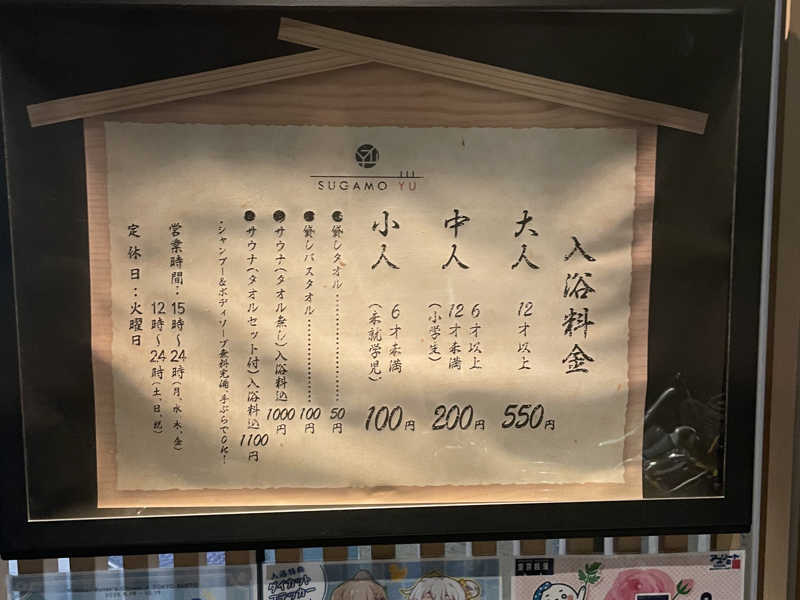 SUGAMO YU
入浴料金
大人 12才以上 550円
中人 6才以上
12才未満
(小学生) 200円
小人 6才未満
(未就学児) 100円
貸しタオル 50円
貸しバスタオル 100円
サウナ(タオル無し)入浴料込 1000円
サウナ(タオルセット付)入浴料込 1100円
・シャンプー&ボディソープ無料完備、手ぶらでOK!
営業時間:15時~24時(月、水、木、金)
12時~24時(土、日、祝)
定休日:火曜日
入浴特典
ダイカット
ステッカー